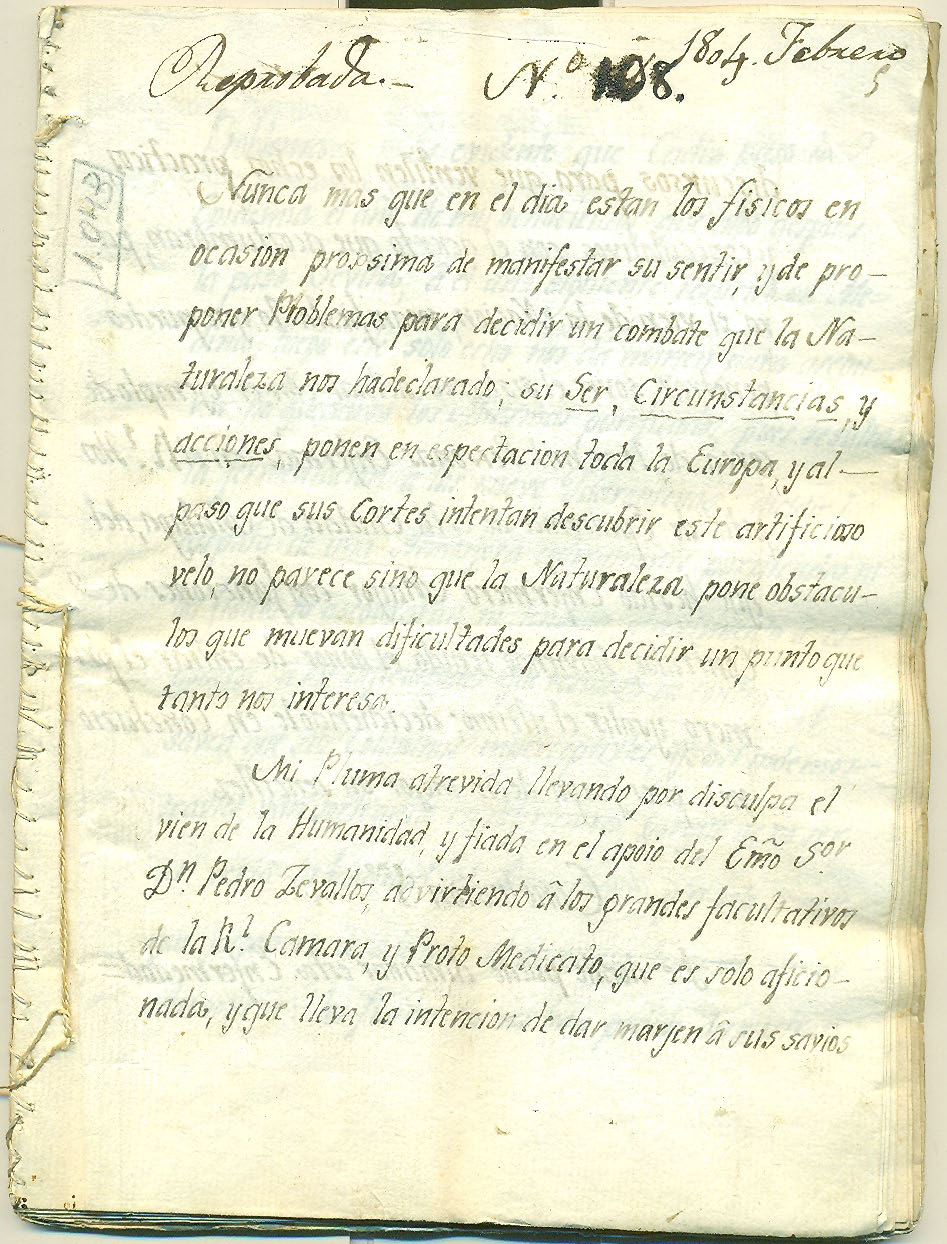 Reprobada.- Nº 108. 1804. Febrero
5
1.043
Nunca mas que en el dia estan los fisicos en
ocasion propsima de manifestar su sentir, y de pro-
poner Problemas para decidir un combate que la Na-
turaleza nos hadeclarado; su Ser, Circunstancias, y
acciones, ponen en espectacion toda la Europa, y al-
paso que sus Cortes intentan descubrir este artificioso
velo, no parece sino que la Naturaleza pone obstacu-
los que muevan dificultades para decidir un punto que
tanto nos interesa.
Mi Pluma atrevida llevando por disculpa el
vien de la Humanidad, y fiada en el apoio del Emõ Sor
Dn Pedro Zevallos, advirtiendo â los grandes facultativos
de la Rl Camara, y Proto Medicato, que es solo aficio-
nada, y que lleva la intencion de dar marjen â sus savios